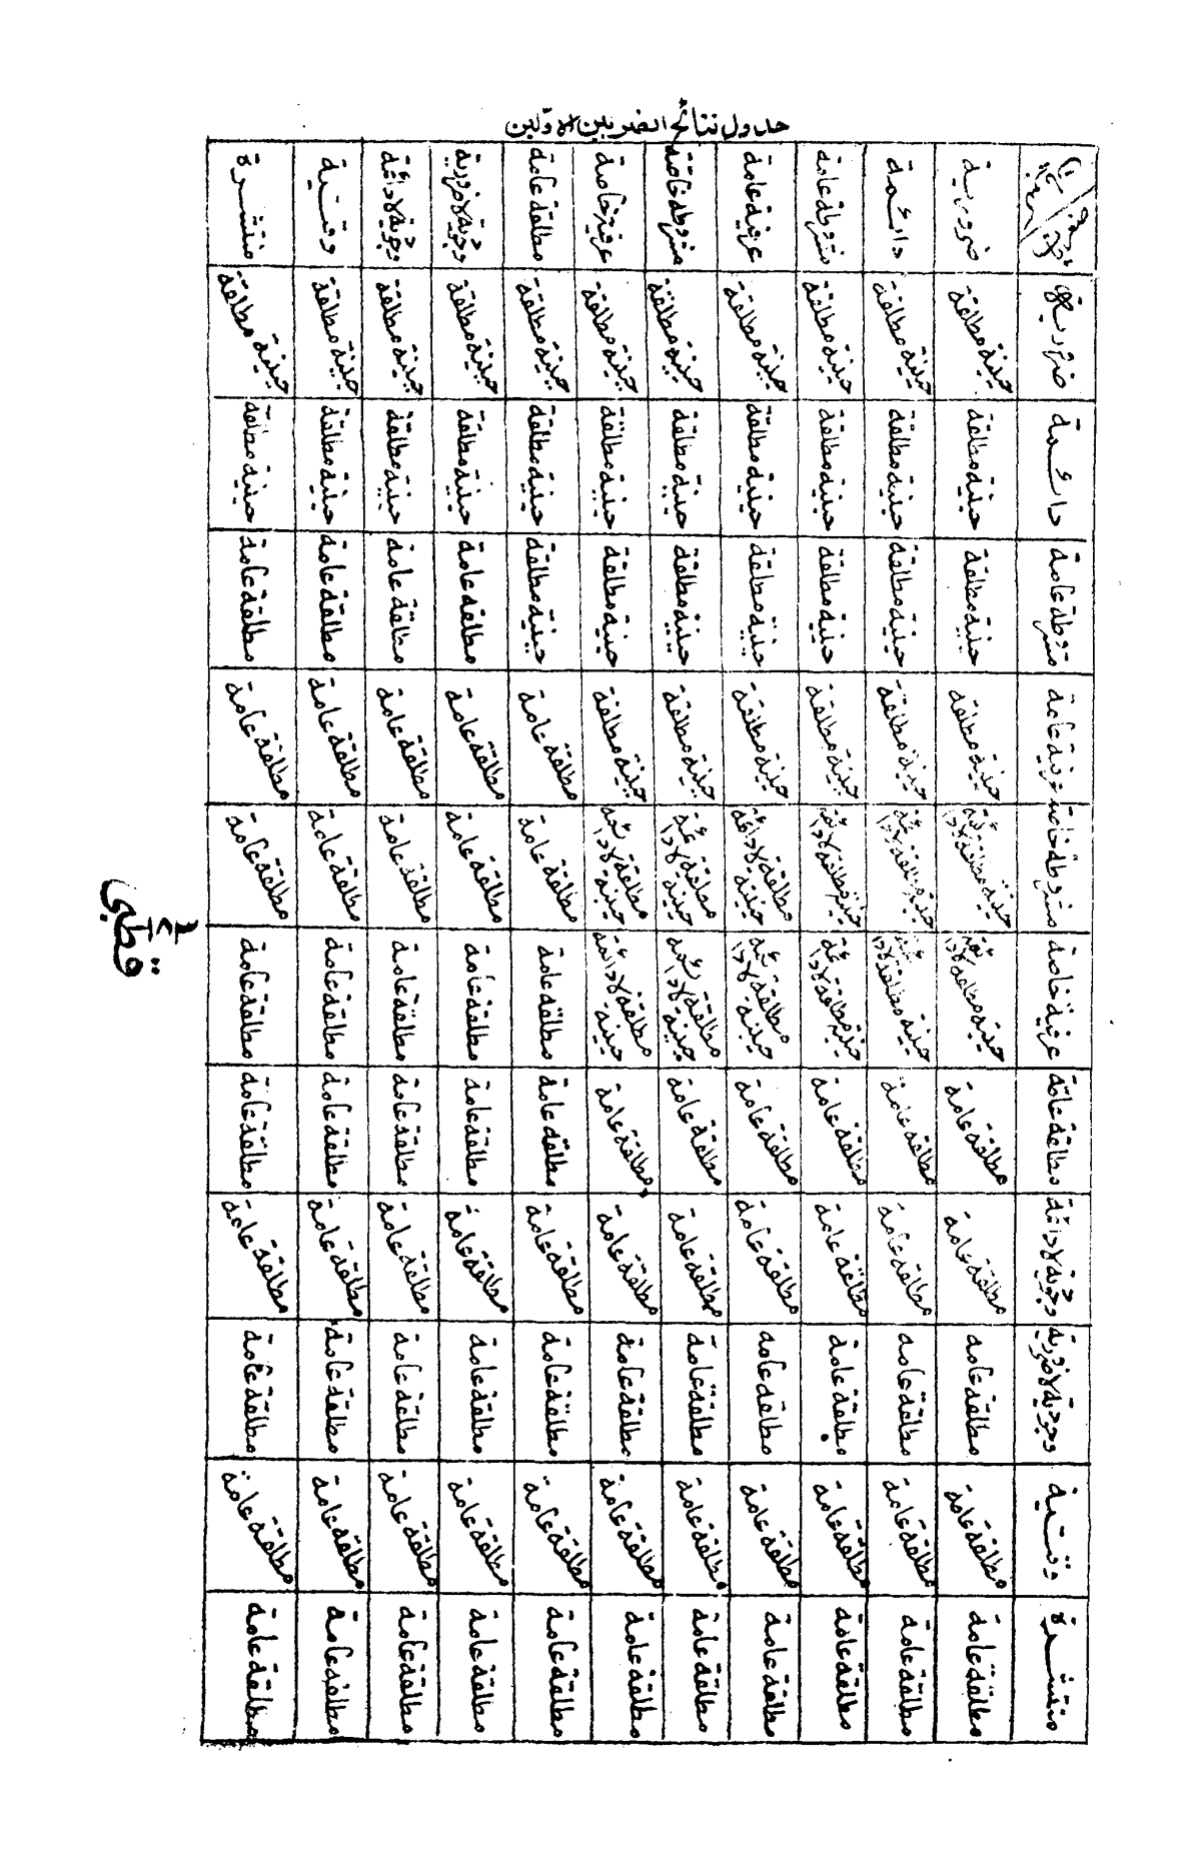 جدول نتائج الضربين الاولين
ضرورية دائمة مشروطة عامة عرفية عامة مشروطة خاصة عرفية خاصة مطلقة عامة وجودية لاضرورية وجودية لادائمة وقتية منتشرة
ضرورية حينية مطلقة حينية مطلقة حينية مطلقة حينية مطلقة حينية مطلقة حينية مطلقة حينية مطلقة حينية مطلقة حينية مطلقة حينية مطلقة حينية مطلقة
دائمة حينية مطلقة حينية مطلقة حينية مطلقة حينية مطلقة حينية مطلقة حينية مطلقة حينية مطلقة حينية مطلقة حينية مطلقة حينية مطلقة حينية مطلقة
مشروطة عامة حينية مطلقة حينية مطلقة حينية مطلقة حينية مطلقة حينية مطلقة حينية مطلقة حينية مطلقة مطلقة عامة مطلقة عامة مطلقة عامة مطلقة عامة
عرفية عامة حينية مطلقة حينية مطلقة حينية مطلقة حينية مطلقة حينية مطلقة حينية مطلقة مطلقة عامة مطلقة عامة مطلقة عامة مطلقة عامة مطلقة عامة
مشروطة خاصة حينية مطلقة لادائمة حينية مطلقة لادائمة حينية مطلقة لادائمة حينية مطلقة لادائمة حينية مطلقة لادائمة حينية مطلقة لادائمة مطلقة عامة مطلقة عامة مطلقة عامة مطلقة عامة مطلقة عامة
عرفية خاصة حينية مطلقة لادائمة حينية مطلقة لادائمة حينية مطلقة لادائمة حينية مطلقة لادائمة حينية مطلقة لادائمة حينية مطلقة لادائمة مطلقة عامة مطلقة عامة مطلقة عامة مطلقة عامة مطلقة عامة
مطلقة عامة مطلقة عامة مطلقة عامة مطلقة عامة مطلقة عامة مطلقة عامة مطلقة عامة مطلقة عامة مطلقة عامة مطلقة عامة مطلقة عامة مطلقة عامة
وجودية لادائمة مطلقة عامة مطلقة عامة مطلقة عامة مطلقة عامة مطلقة عامة مطلقة عامة مطلقة عامة مطلقة عامة مطلقة عامة مطلقة عامة مطلقة عامة
وجودية لاضرورية مطلقة عامة مطلقة عامة مطلقة عامة مطلقة عامة مطلقة عامة مطلقة عامة مطلقة عامة مطلقة عامة مطلقة عامة مطلقة عامة مطلقة عامة
وقتية مطلقة عامة مطلقة عامة مطلقة عامة مطلقة عامة مطلقة عامة مطلقة عامة مطلقة عامة مطلقة عامة مطلقة عامة مطلقة عامة مطلقة عامة
منتشرة مطلقة عامة مطلقة عامة مطلقة عامة مطلقة عامة مطلقة عامة مطلقة عامة مطلقة عامة مطلقة عامة مطلقة عامة مطلقة عامة مطلقة عامة
قطبى